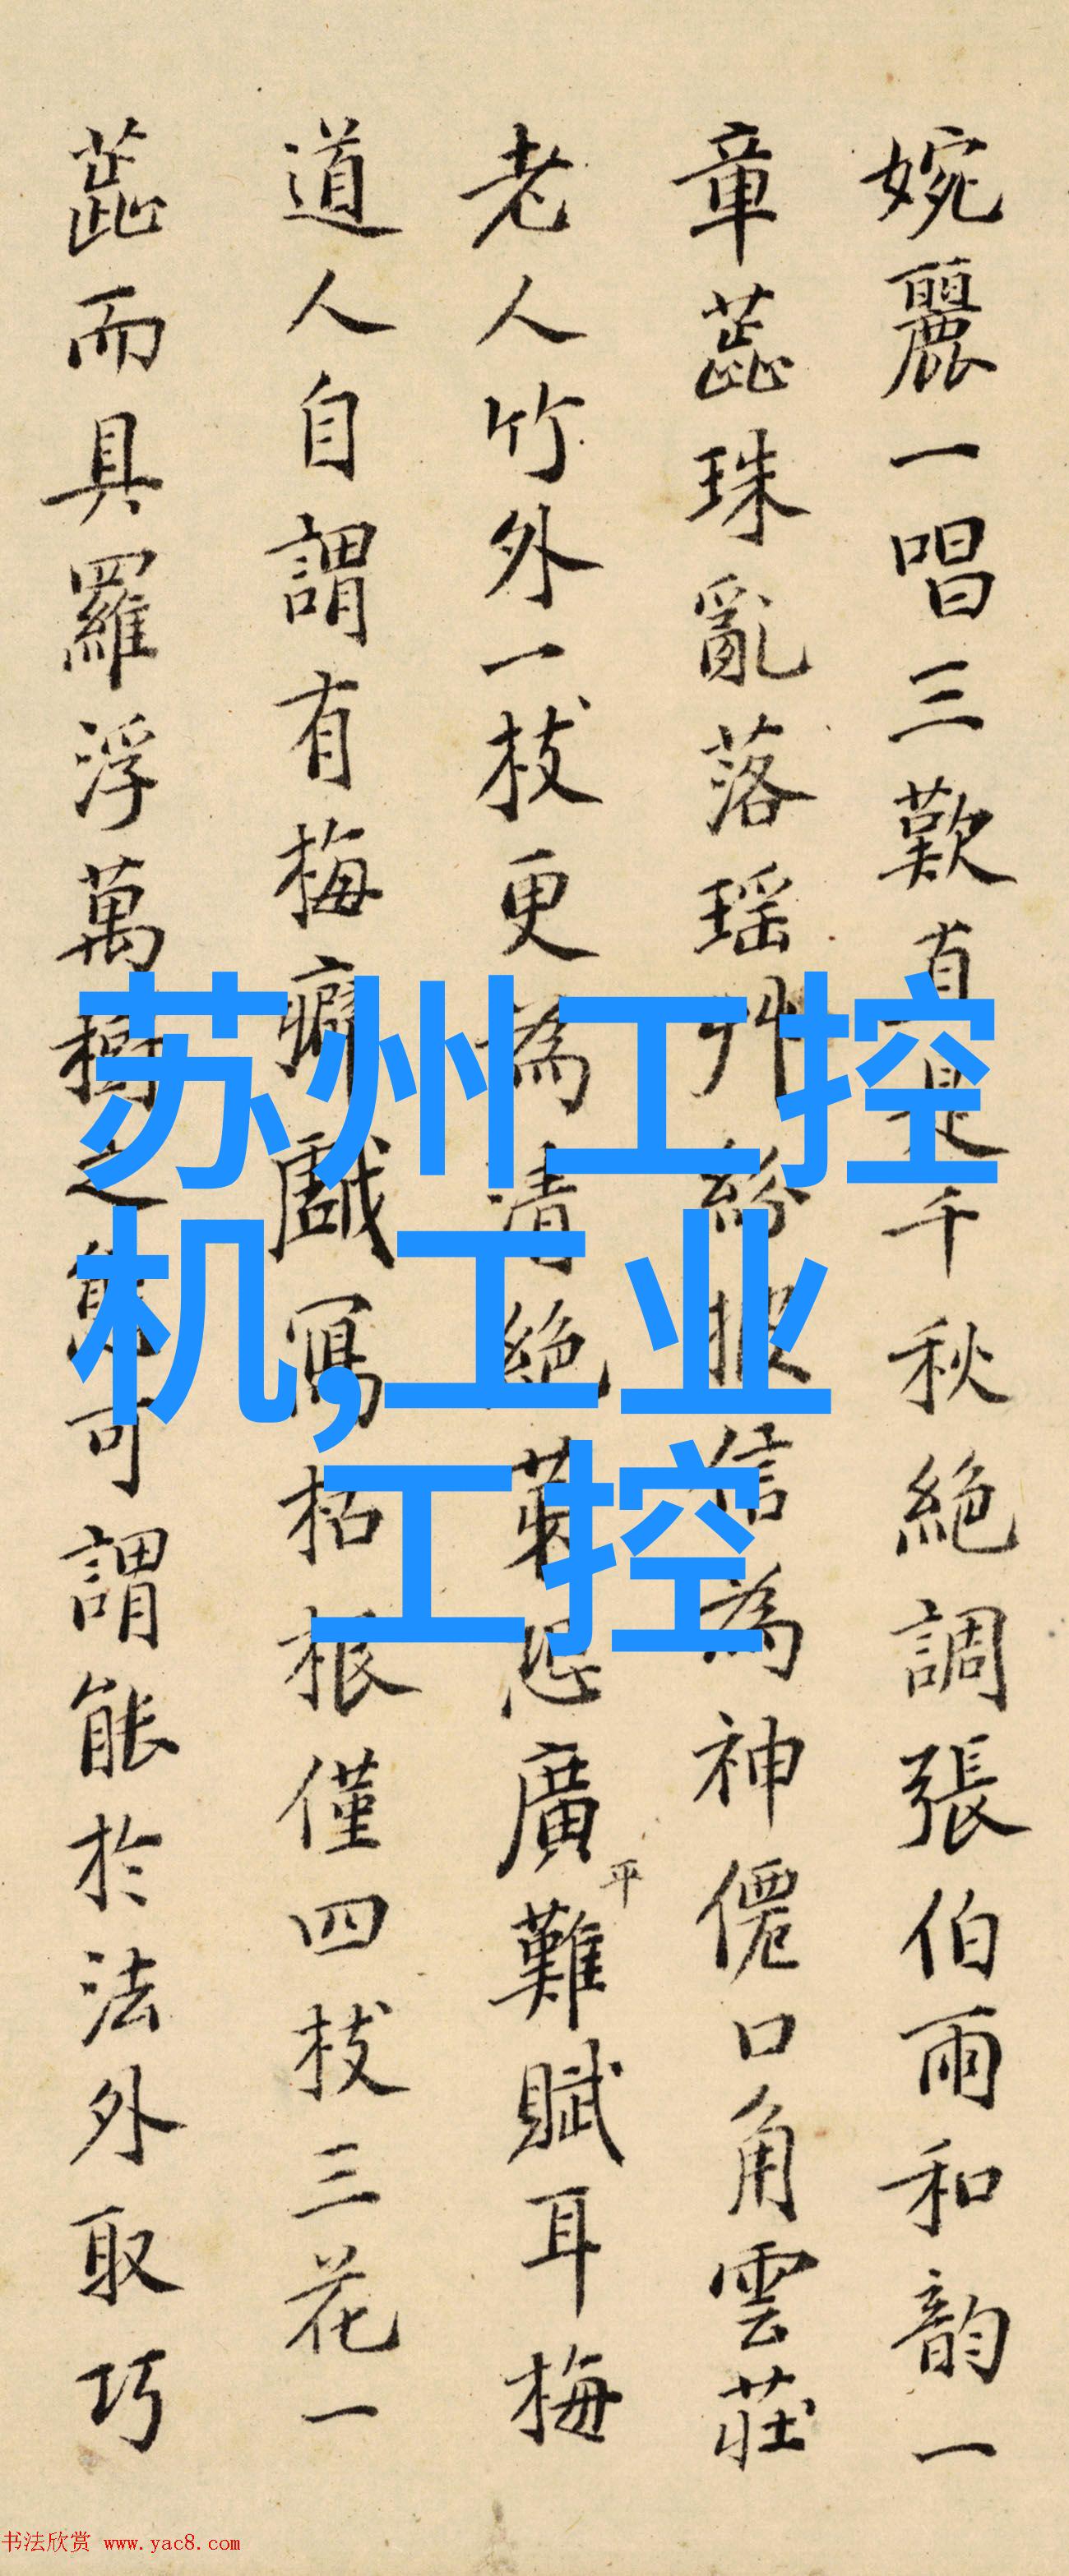 婉麗一唱三歎直是千秋絕調張伯雨和韻一
章蕋珠亂落瑶艸紛披信為神僊口角雲莊
老人竹外一枝更為清絕第恐廣平難賦耳梅
道人自謂有梅癖戲寫枯根僅四枝三花一
蕋而具羅浮萬樹之可謂能於法外取巧
苏州工控
机,工业
工控
书法欣赏 www.yac8.com